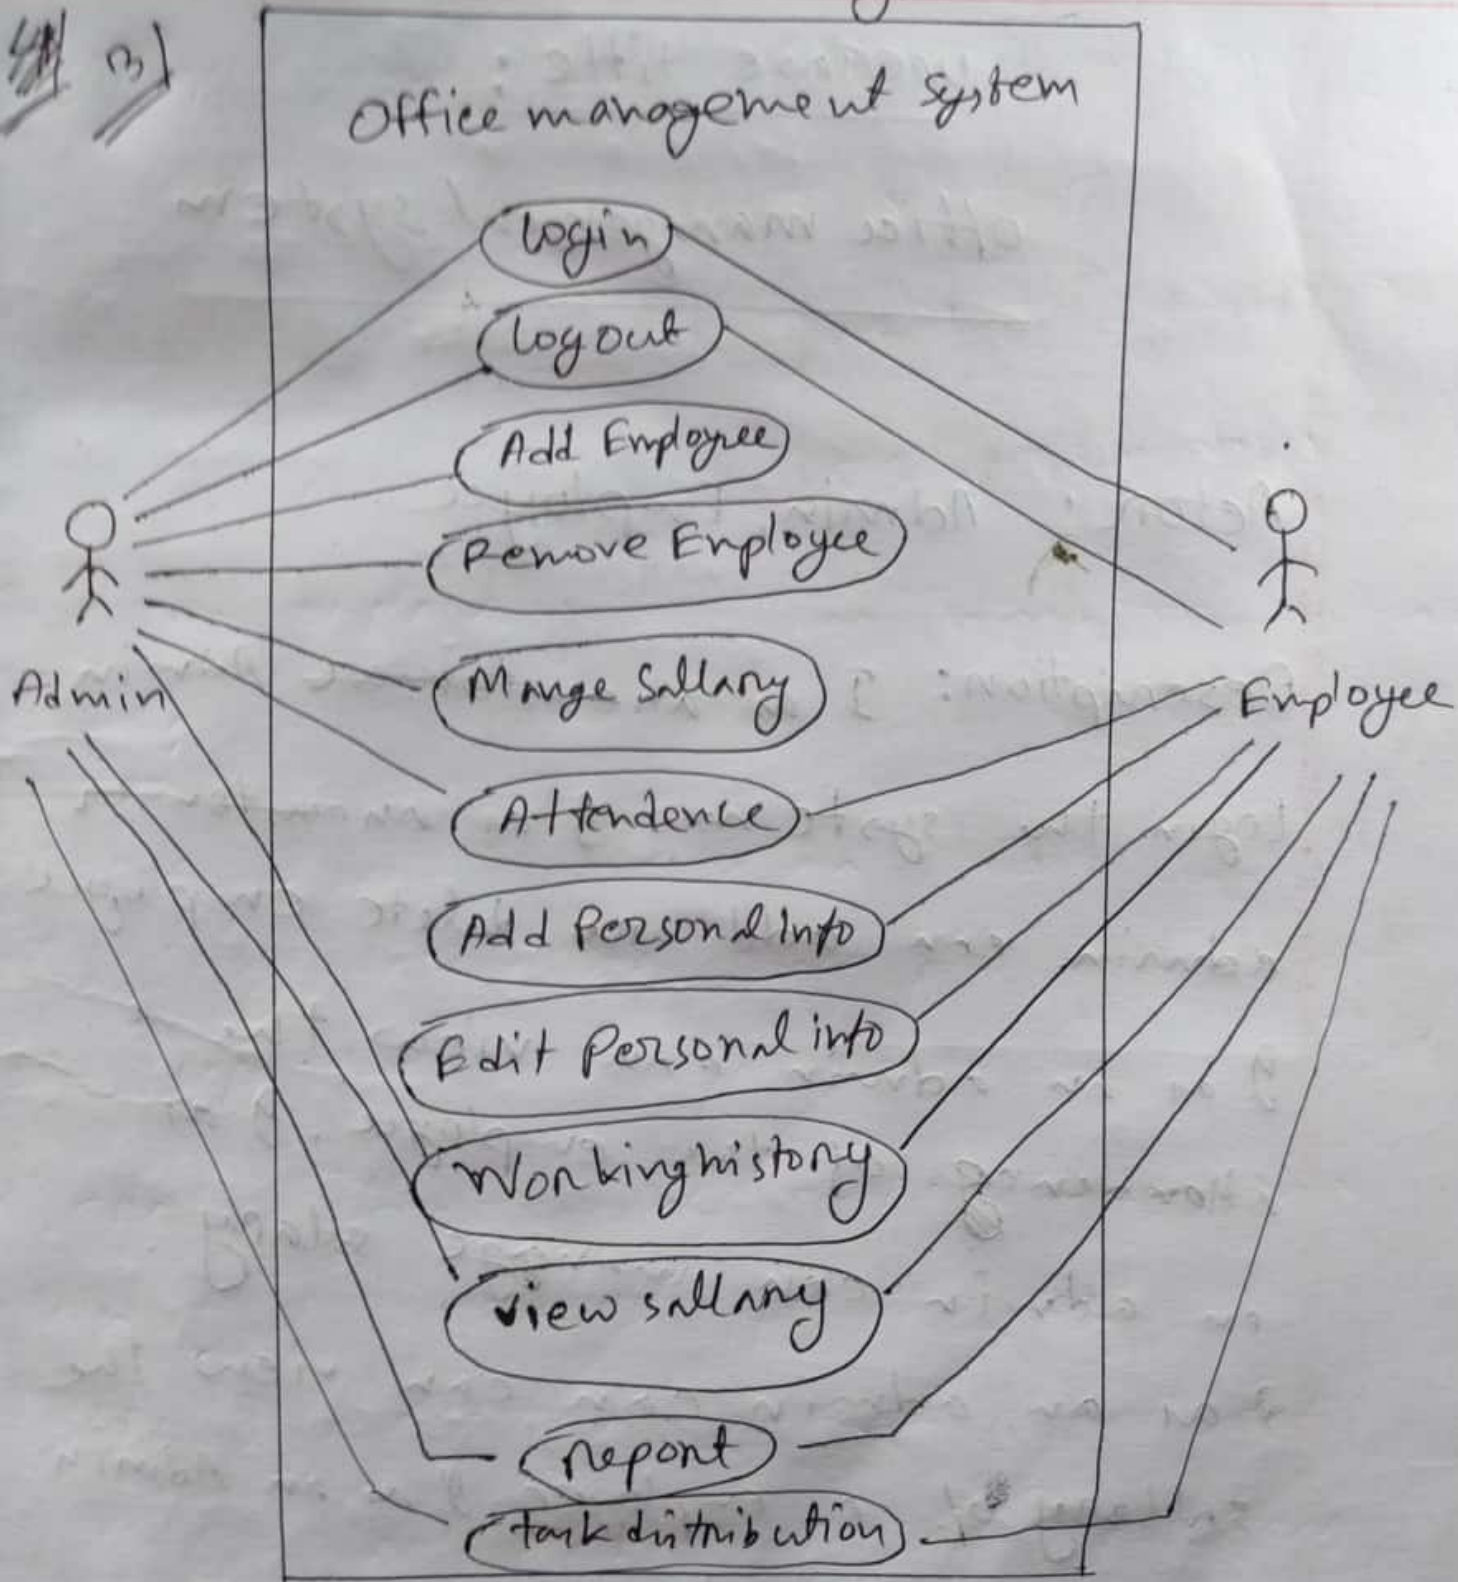 3)
Office management system
login
logout
Add Employee
Remove Employee
Mange Sallary
Admin
Employee
Attendence
Add Personal info
Edit Personal info
Working history
view sallary
report
task distribution